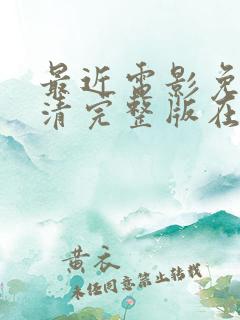 最近电影免
清完整版在
黄衣
未经同意禁止转载